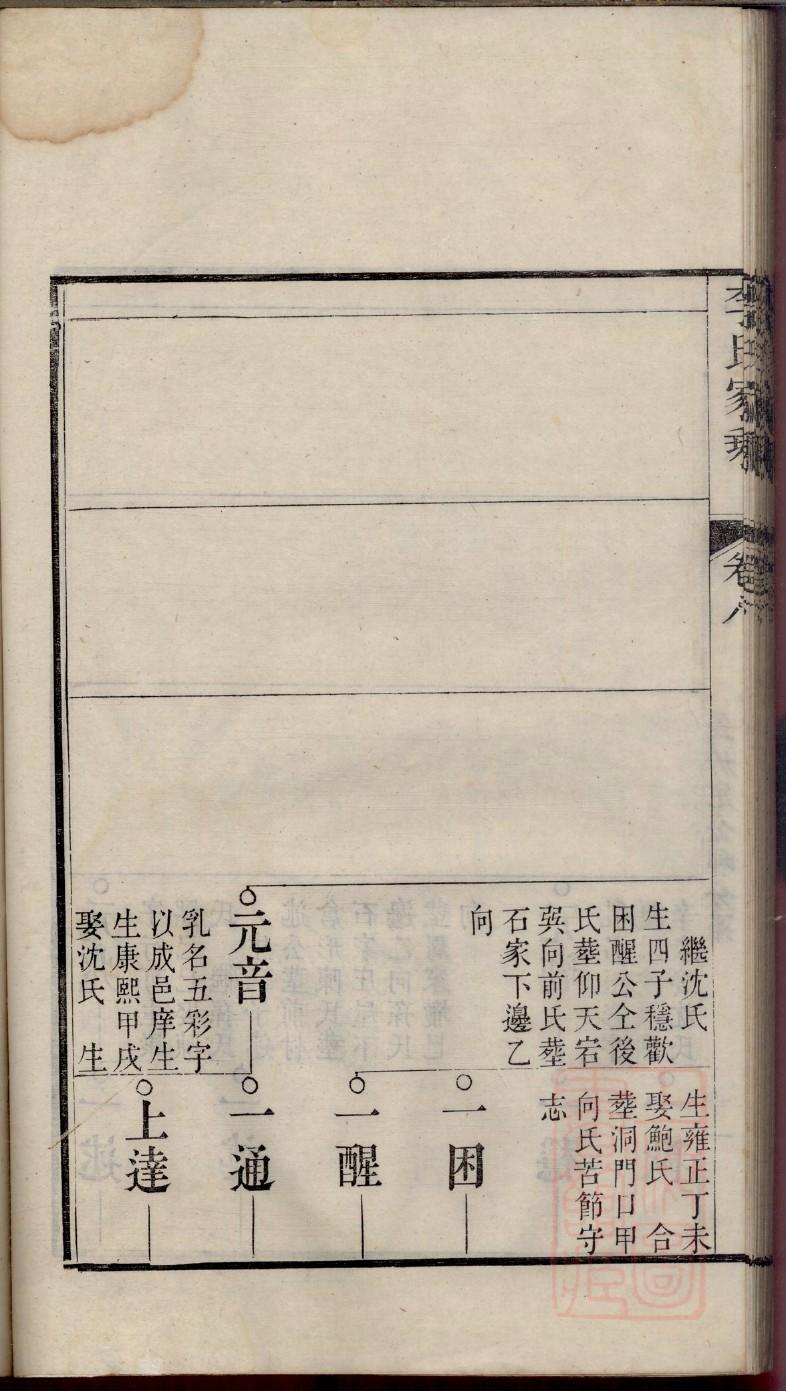 李氏家乘
卷八
繼沈氏
生四子穩歡
困醒公仝後
氏塟仰天宕
巽向前氏塟
石家下邊乙
向
元音
乳名五彩字
以成邑庠生
生康熙甲戌
娶沈氏 生
生雍正丁未
娶鮑氏 合
塟洞門口甲
向氏苦節守
志
一困
一醒
一通
上達